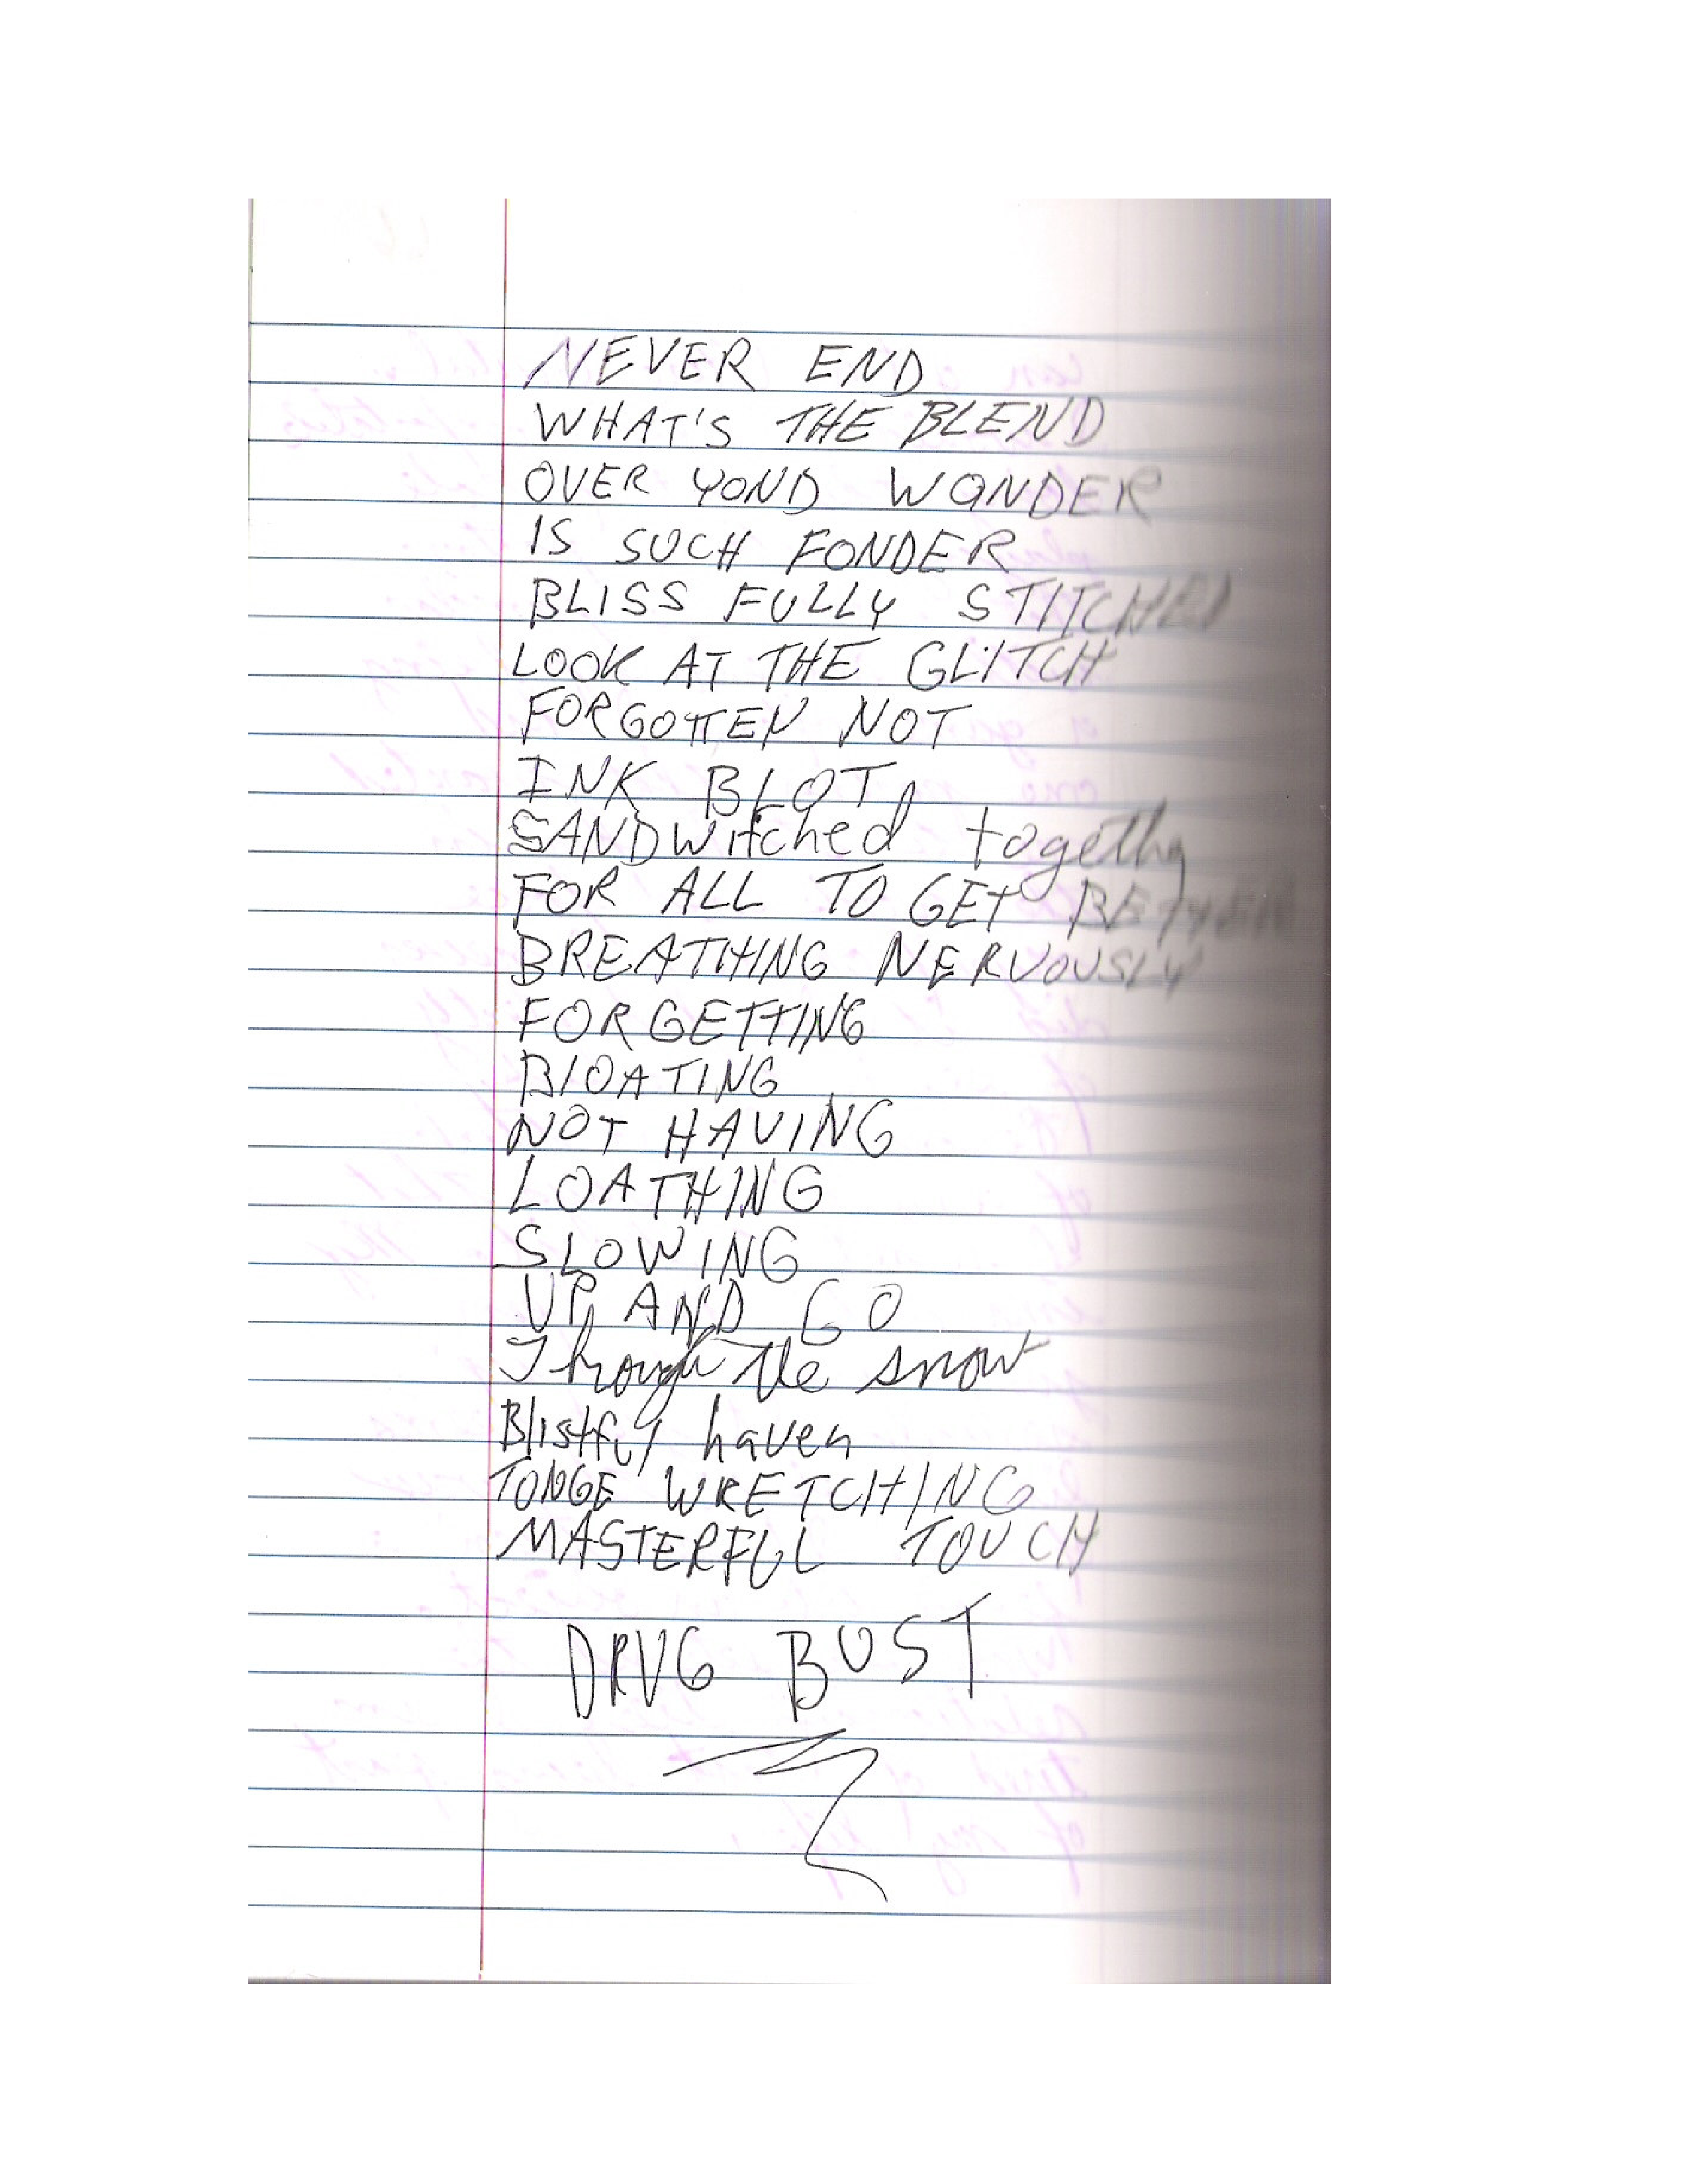 NEVER END
WHAT'S THE BLEND
OVER YOND WONDER
IS SUCH FONDER
BLISS FULLY STITCHED
LOOK AT THE GLITCH
FORGOTTEN NOT
INK BLOT
SANDWitched together
FOR ALL TO GET BETTER
BREATHING NERVOUSLY
FORGETTING
BLOATING
NOT HAVING
LOATHING
SLOWING
UP AND GO
Through the snow
haven
TONGE WRETCHING
MASTERFUL TOUCH
DRUG BUST